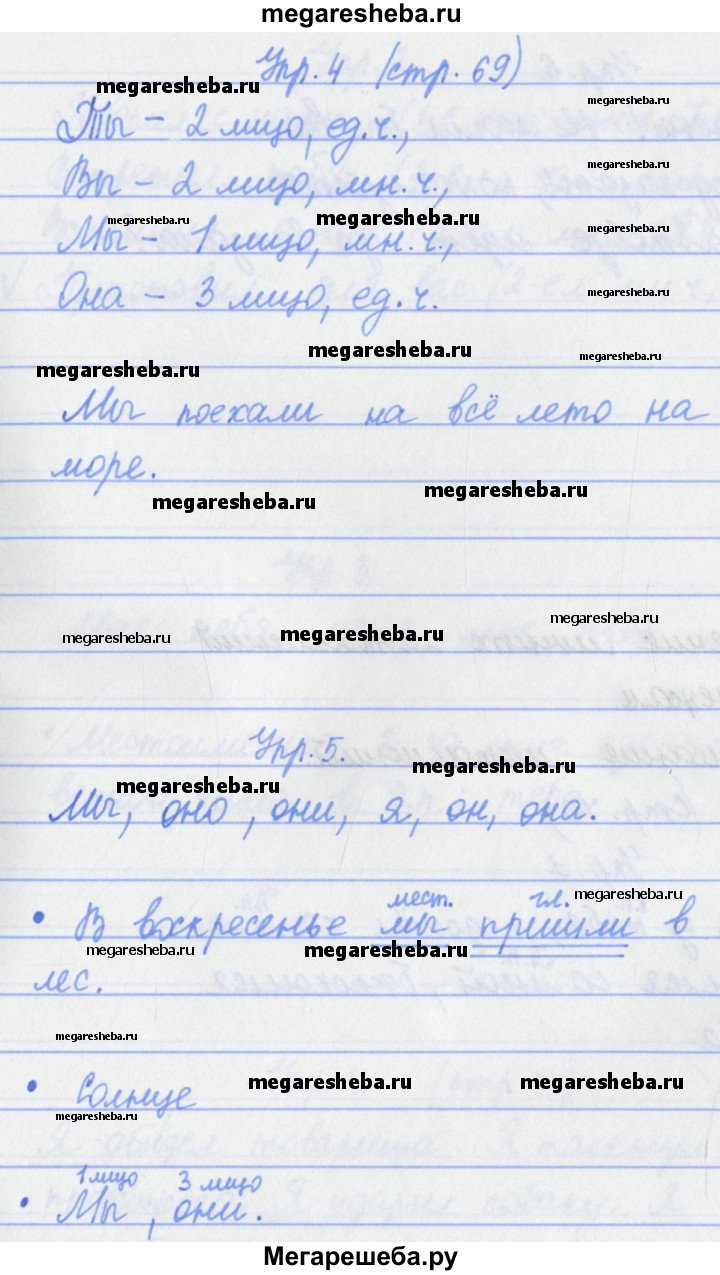 megaresheba.ru
Упр. 4 (стр. 69)
megaresheba.ru
megaresheba.ru
Ты – 2 лицо, ед.ч.,
megaresheba.ru
Вы – 2 лицо, мн.ч.,
megaresheba.ru
megaresheba.ru
megaresheba.ru
Мы – 1 лицо, мн.ч.,
megaresheba.ru
Она – 3 лицо, ед.ч.
megaresheba.ru
megaresheba.ru
megaresheba.ru
Мы поехали на всё лето на
море.
megaresheba.ru
megaresheba.ru
megaresheba.ru
megaresheba.ru
megaresheba.ru
Упр. 5.
megaresheba.ru
megaresheba.ru
Мы, оно, они, я, он, она.
мест. гл.
megaresheba.ru
• В воскресенье мы пришли в
megaresheba.ru
megaresheba.ru
лес.
megaresheba.ru
• Солнце
megaresheba.ru
megaresheba.ru
megaresheba.ru
1 лицо 3 лицо
• Мы, они.
Мегарешеба.ру